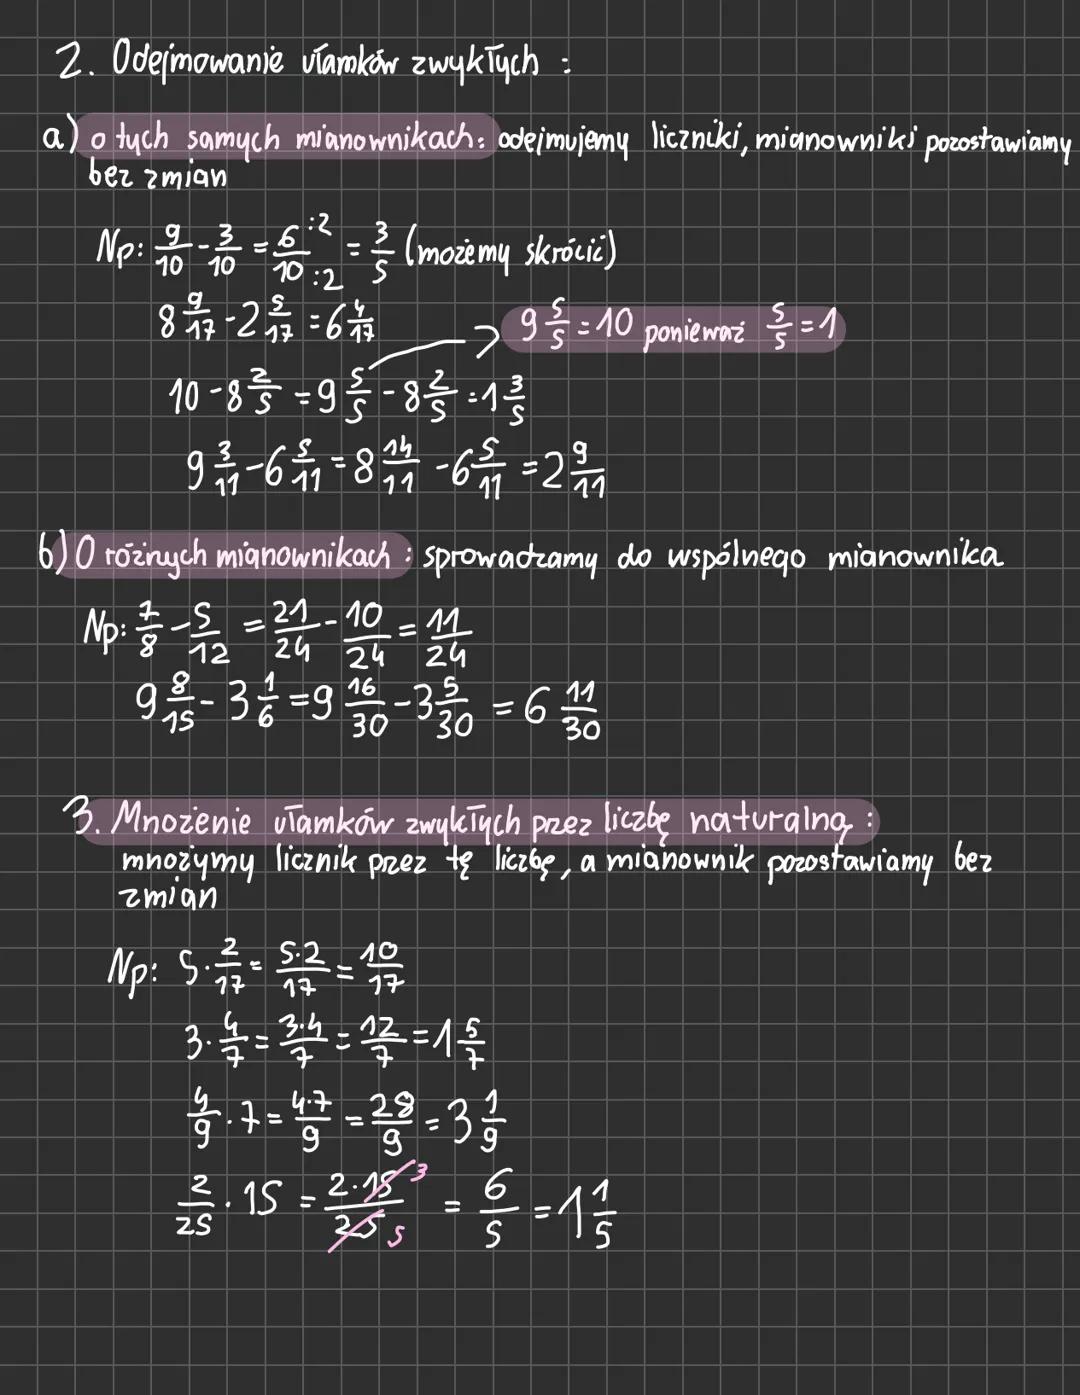 2. Odejmowanie ułamków zwykłych :
a) o tych samych mianownikach: odejmujemy liczniki, mianowniki pozostawiamy
bez zmian
Np: 9/10 - 3/10 = 6/10 :2 :2 = 3/5 (możemy skrócić)
8 9/17 - 2 5/17 = 6 4/17
9 5/5 = 10 ponieważ 5/5 = 1
10 - 8 2/5 = 9 5/5 - 8 2/5 = 1 3/5
9 3/11 - 6 5/11 = 8 14/11 - 6 5/11 = 2 9/11
b) O różnych mianownikach : sprowadzamy do wspólnego mianownika
Np: 7/8 - 5/12 = 21/24 - 10/24 = 11/24
9 8/15 - 3 1/6 = 9 16/30 - 3 5/30 = 6 11/30
3. Mnożenie ułamków zwykłych przez liczbę naturalną :
mnożymy licznik przez tę liczbę, a mianownik pozostawiamy bez
zmian
Np: 5 · 2/17 = 5·2/17 = 10/17
3 · 4/7 = 3·4/7 = 12/7 = 1 5/7
4/9 · 7 = 4·7/9 = 28/9 = 3 1/9
2/25 · 15 = 2·15 3/25 5 = 6/5 = 1 1/5